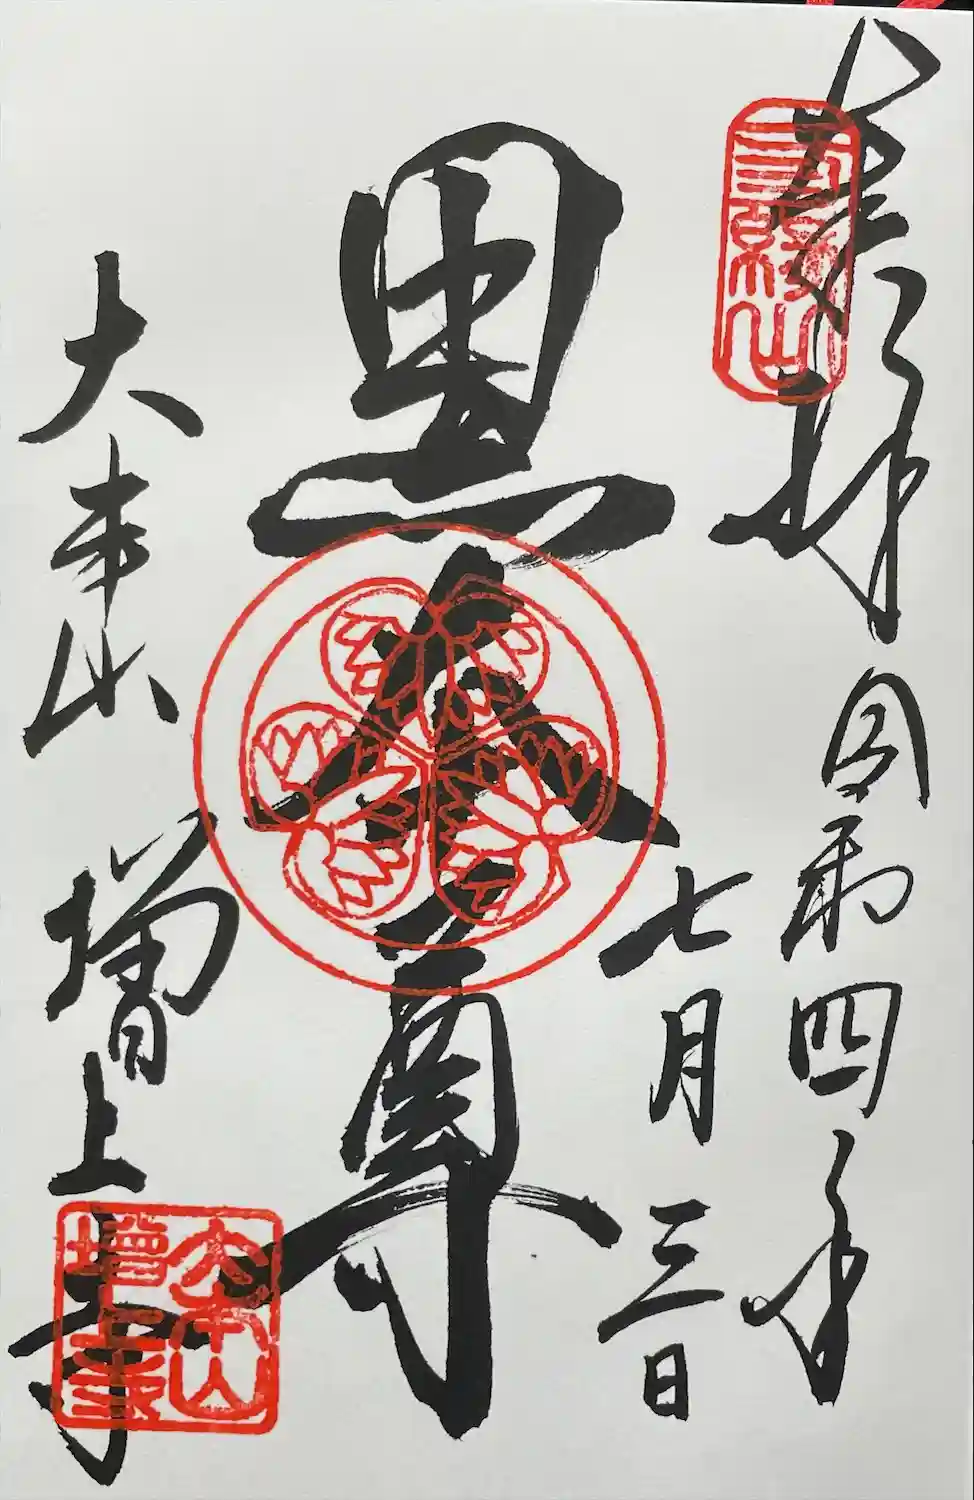 奉拝 令和四年
七月三日
三縁山
黒本尊
大本山 増上寺
大本山
增上寺